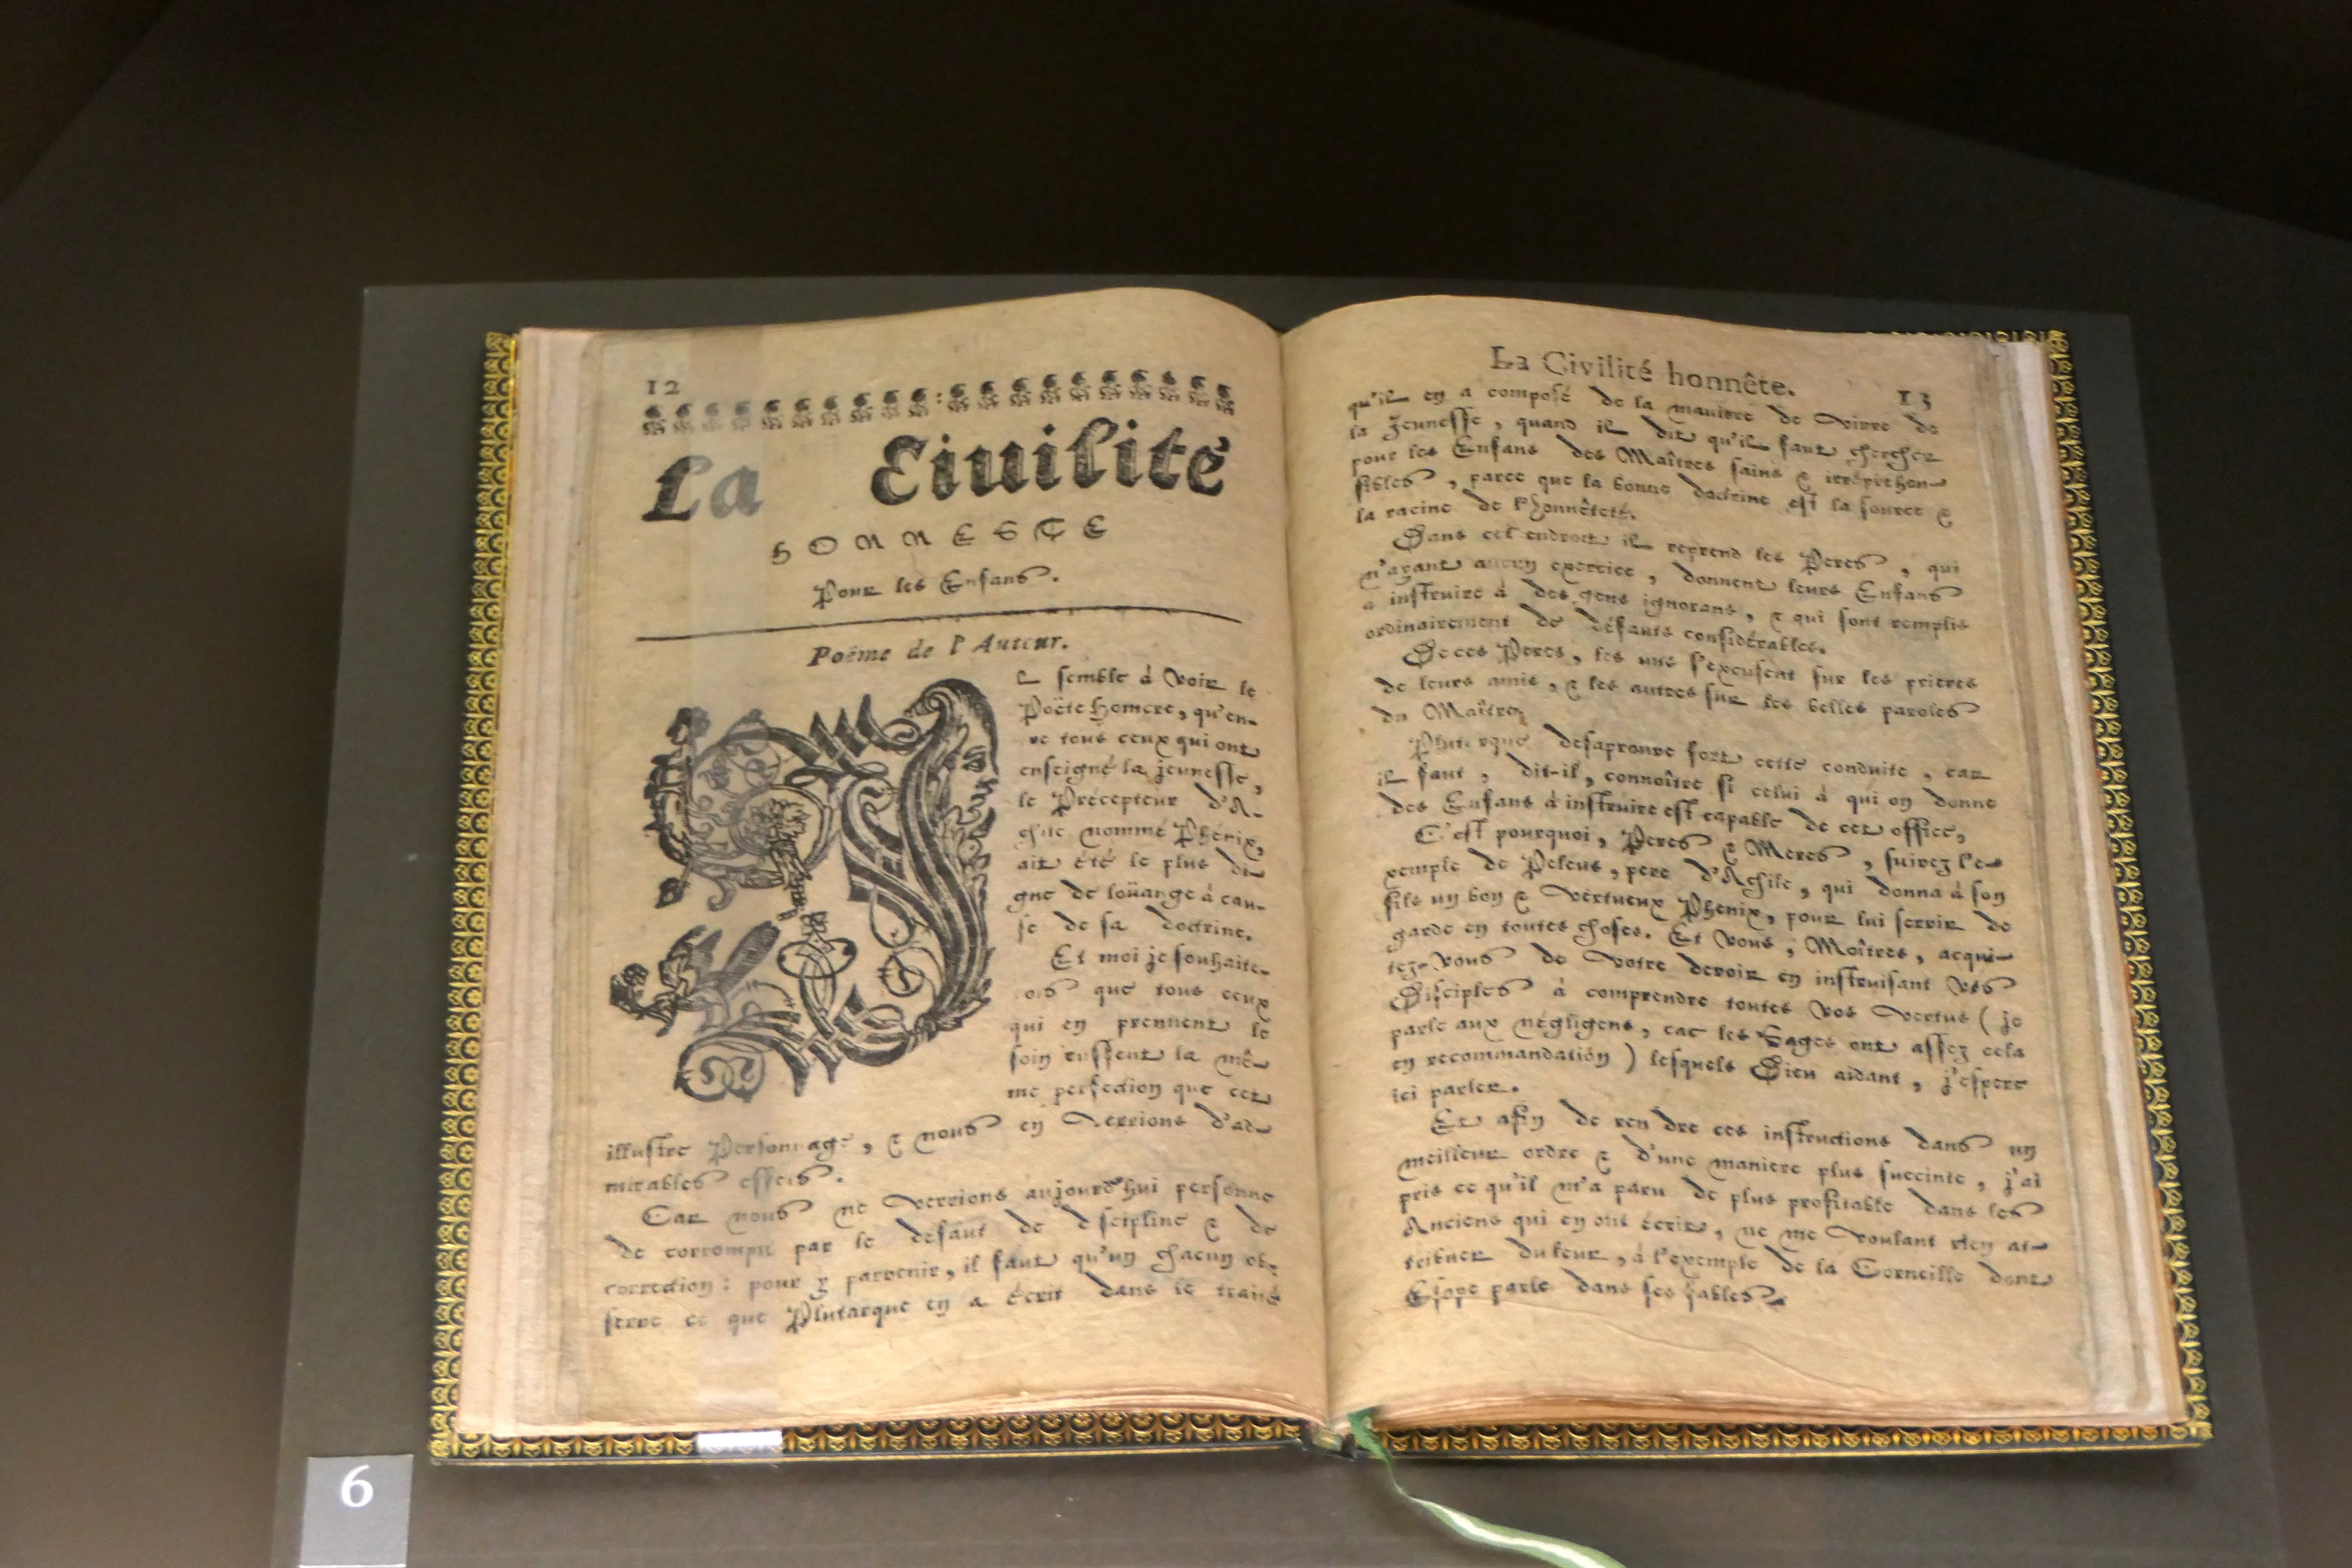 12
La Civilite
HONNESTE
Pour les Enfans.
Poëme de l'Auteur.
L semble à voir le
Poëte Homere, qu'en-
re tous ceux qui ont
enseigné la jeunesse,
le Précepteur d'A-
chile nommé Phénix,
ait été le plus di-
gne de loüange à cau-
se de sa doctrine.
Et moi je souhaite-
ois que tous ceux
qui en prennent le
soin eussent la mê-
me perfection que cet
illustre Personnage, & nous en verrions d'ad-
mirables effets.
Car nous ne verrions aujourd'hui personne
de corrompu par le defaut de discipline & de
correction: pour y parvenir, il faut qu'un chacun ob-
serve ce que Plutarque en a écrit dans le traité
La Civilité honnête. 13
qu'il en a composé de la maniere de vivre de
la Jeunesse, quand il dit qu'il faut chercher
pour les Enfans des Maîtres sains & irrépréhen-
sibles, parce que la bonne doctrine est la source &
la racine de l'honnêteté.
Dans cet endroit il reprend les Peres, qui
n'ayant aucun exercice, donnent leurs Enfans
a instruire à des gens ignorans, & qui sont remplis
ordinairement de défauts considérables.
De ces Peres, les uns s'excusent sur les prieres
de leurs amis, & les autres sur les belles paroles
du Maître.
Plutarque desaprouve fort cette conduite, car
il faut, dit-il, connoître si celui à qui on donne
des Enfans à instruire est capable de cet office,
C'est pourquoi, Peres & Meres, suivez l'e-
xemple de Peleus, pere d'Achile, qui donna à son
fils un bon & vertueux Phenix, pour lui servir de
garde en toutes choses. Et vous, Moîtres, acqui-
tez-vous de votre devoir en instruisant vos
Disciples à comprendre toutes vos vertus (je
parle aux négligens, car les Sages ont assez cela
en recommandation) lesquels Dieu aidant, j'espere
ici parler.
Et afin de ren dre ces instructions dans un
meilleur ordre & d'une maniere plus succinte, j'ai
pris ce qu'il m'a paru de plus profitable dans les
Anciens qui en ont écrit, ne me voulant rien at-
tribuer du leur, à l'exemple de la Corneille dont
Esope parle dans ses fables.
6